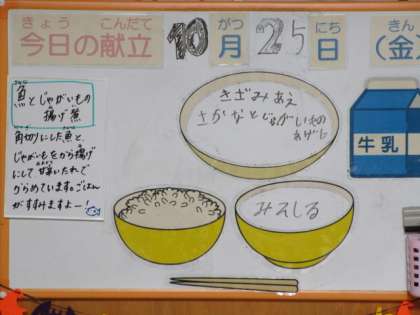 きょう こんだて がつ にち きん
今日の献立 10月 25日 (金)
魚とじゃがいもの
揚げ煮
角切りにした魚と、
じゃがいもをから揚げ
にして甘辛いたれで
からめています。ごはん
がすすみますよー!
きざみあえ
さかなとじゃがいもの
あげに
牛乳
みそしる